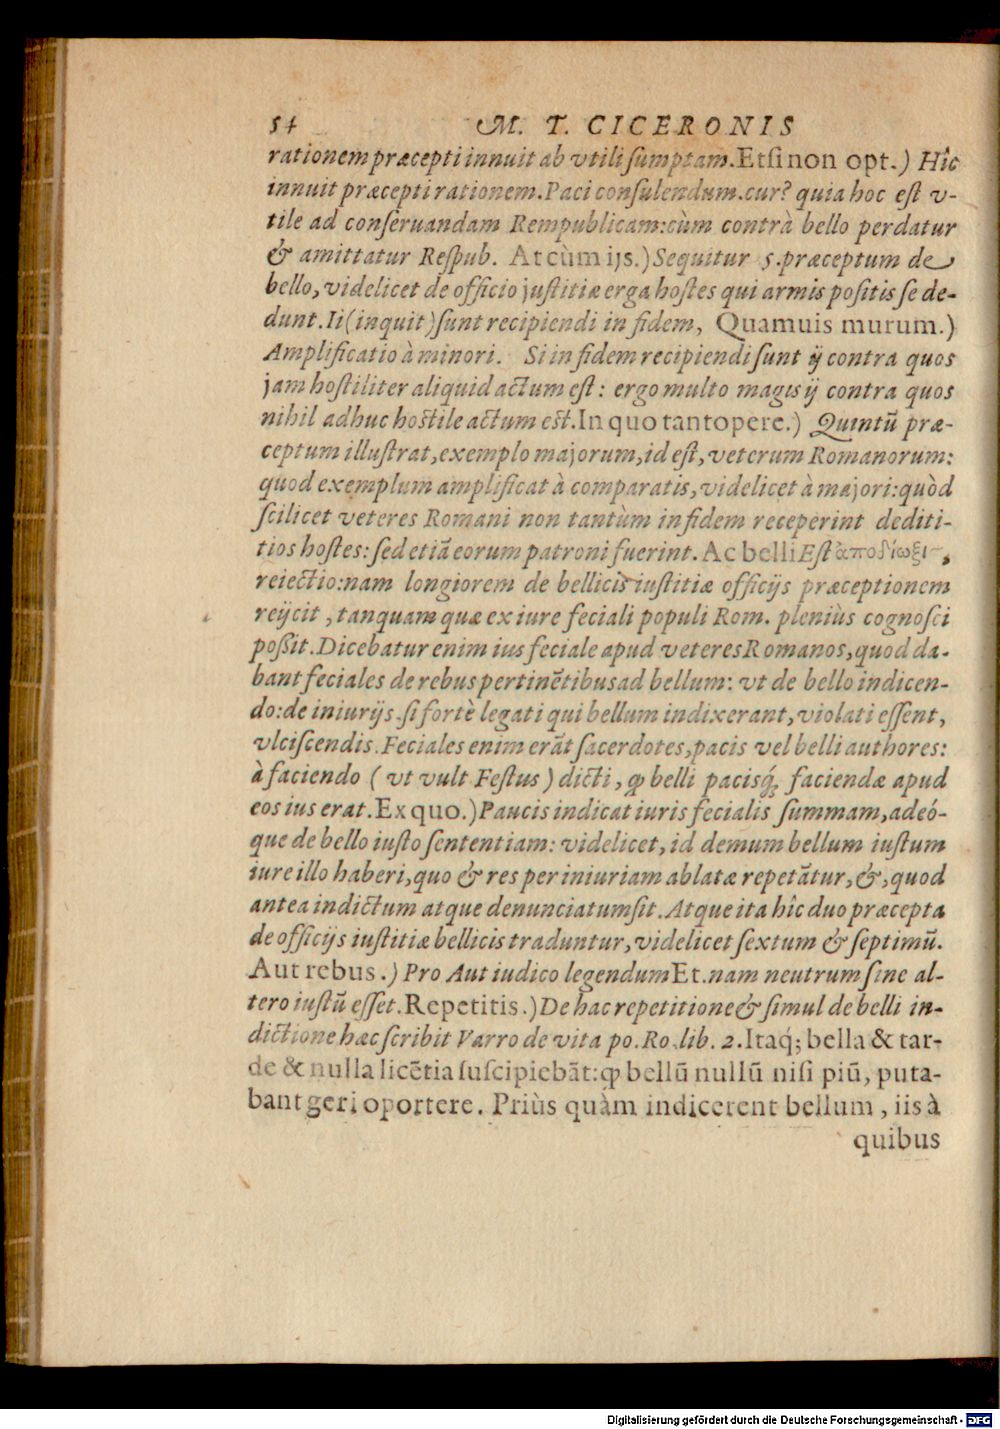 54 M. T. CICERONIS
rationem præcepti innuit ab vtili ſumptam. Etſi non opt.) Hîc
innuit præcepti rationem. Paci conſulendum. cur? quia hoc eſt v-
tile ad conſeruandam Rempublicam: cùm contrà bello perdatur
& amittatur Reſpub. At cùm ijs.) Sequitur 5. præceptum de
bello, videlicet de officio juſtitiæ erga hoſtes qui armis poſitis ſe de-
dunt. Ii (inquit) ſunt recipiendi in fidem, Quamuis murum.)
Amplificatio à minori. Si in fidem recipiendi ſunt ij contra quos
jam hoſtiliter aliquid actum eſt: ergo multo magis ij contra quos
nihil adhuc hoſtile actum eſt. In quo tantopere.) Quintū præ-
ceptum illuſtrat, exemplo majorum, id eſt, veterum Romanorum:
quod exemplum amplificat à comparatis, videlicet à majori: quòd
ſcilicet veteres Romani non tantùm in fidem receperint dediti-
tios hoſtes: ſed etiā eorum patroni fuerint. Ac belli Eſt ἀποδίωξι ,
reiectio: nam longiorem de bellicis iuſtitiæ officijs præceptionem
reijcit, tanquam quæ ex iure feciali populi Rom. pleniùs cognoſci
poſſit. Dicebatur enim ius feciale apud veteres Romanos, quod da-
bant feciales de rebus pertinētibus ad bellum: vt de bello indicen-
do: de iniurijs. ſi fortè legati qui bellum indixerant, violati eſſent,
vlciſcendis. Feciales enim erāt ſacerdotes, pacis vel belli authores:
à faciendo (vt vult Feſtus) dicti, ꝙ belli pacisq́; faciendæ apud
eos ius erat. Ex quo.) Paucis indicat iuris fecialis ſummam, adeó-
que de bello iuſto ſententiam: videlicet, id demum bellum iuſtum
iure illo haberi, quo & res per iniuriam ablatæ repetātur, &, quod
antea indictum atque denunciatum ſit. Atque ita hîc duo præcepta
de officijs iuſtitiæ bellicis traduntur, videlicet ſextum & ſeptimū.
Aut rebus.) Pro Aut iudico legendum Et. nam neutrum ſine al-
tero iuſtū eſſet. Repetitis.) De hac repetitione & ſimul de belli in-
dictione hæc ſcribit Varro de vita po. Ro. lib. 2. Itaq́; bella & tar-
de & nulla licētia ſuſcipiebāt: ꝙ bellū nullū niſi piū, puta-
bant geri oportere. Priùs quàm indicerent bellum, iis à
quibus
Digitalisierung gefördert durch die Deutsche Forschungsgemeinschaft - DFG